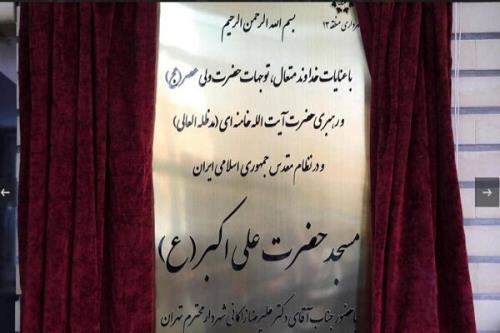 شهرداری منطقه ۱۳
بسم الله الرحمن الرحیم
با عنایات خداوند متعال، توجهات حضرت ولی عصر (عج)
و رهبری حضرت آیت الله خامنه ای (مدظله العالی)
و در نظام مقدس جمهوری اسلامی ایران
مسجد حضرت علی اکبر (ع)
با حضور جناب آقای دکتر علیرضا زاکانی شهردار محترم تهران